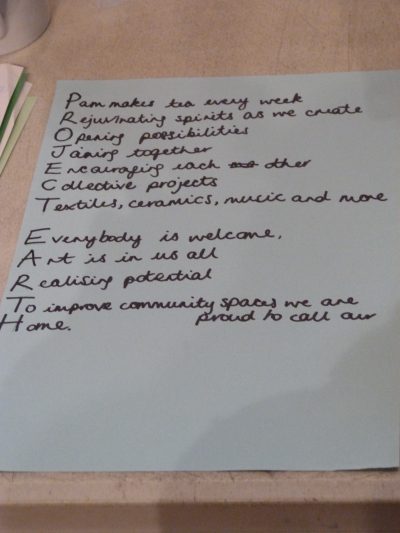 Pam makes tea every week
Rejuvinating spirits as we create
Opening possibilities
Joining together
Encouraging each other
Collective projects
Textiles, ceramics, music and more
Everybody is welcome,
Art is in us all
Realising potential
To improve community spaces we are
proud to call our
Home.